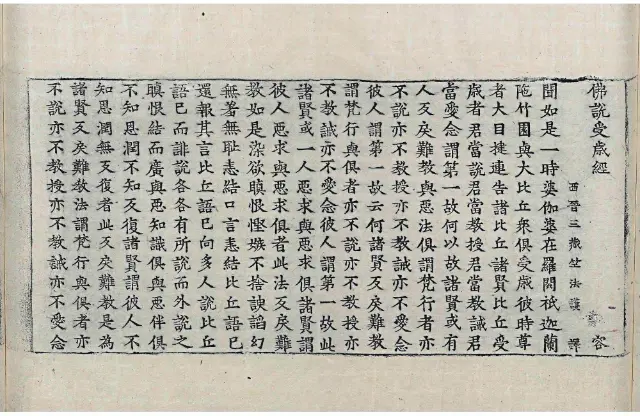 佛說受歲經
西晉三藏竺法護 譯
聞如是一時婆伽婆在羅閱祇迦蘭
陁竹園與大比丘衆俱受歲彼時尊
者大目揵連告諸比丘諸賢比丘受
歳者君當說君當教授君當教誡君
當愛念謂第一故何以故諸賢或有
人反戾難教與惡法俱謂梵行者亦
不說亦不教授亦不教誡亦不愛念
彼人謂第一故云何諸賢反戾難教
謂梵行與俱者亦不說亦不教授亦
不教誡亦不愛念彼人謂第一故此
諸賢或一人惡求與惡求俱諸賢謂
彼人惡求與惡求俱者此法反戾難
教如是染欲瞋恨慳嫉不捨諛諂幻
無著無耻恚結口言恚結比丘語已
還報其言比丘語已向多人說比丘
語已而誹說各各有所說而外說之
瞋恨結而廣與惡知識俱與惡伴俱
不知恩潤不知反復諸賢謂彼人不
知恩潤無反復者此反戾難教是為
諸賢反戾難教法謂梵行與俱者亦
不說亦不教授亦不教誡亦不愛念